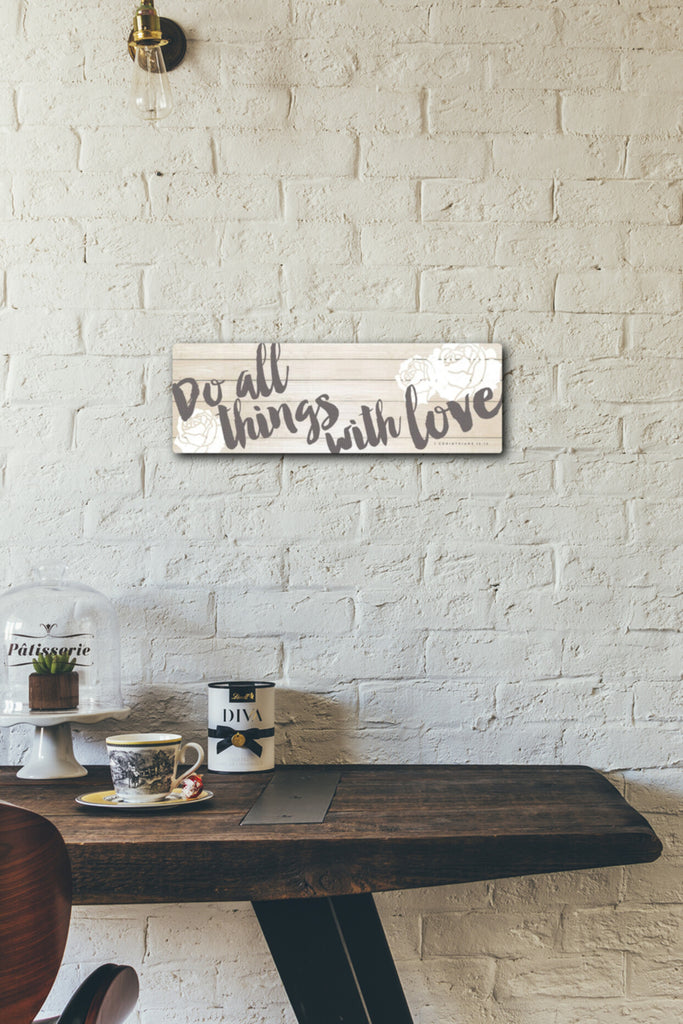 Do all
things with love
1 CORINTHIANS 16:14
Pâtisserie
Lindt
DIVA